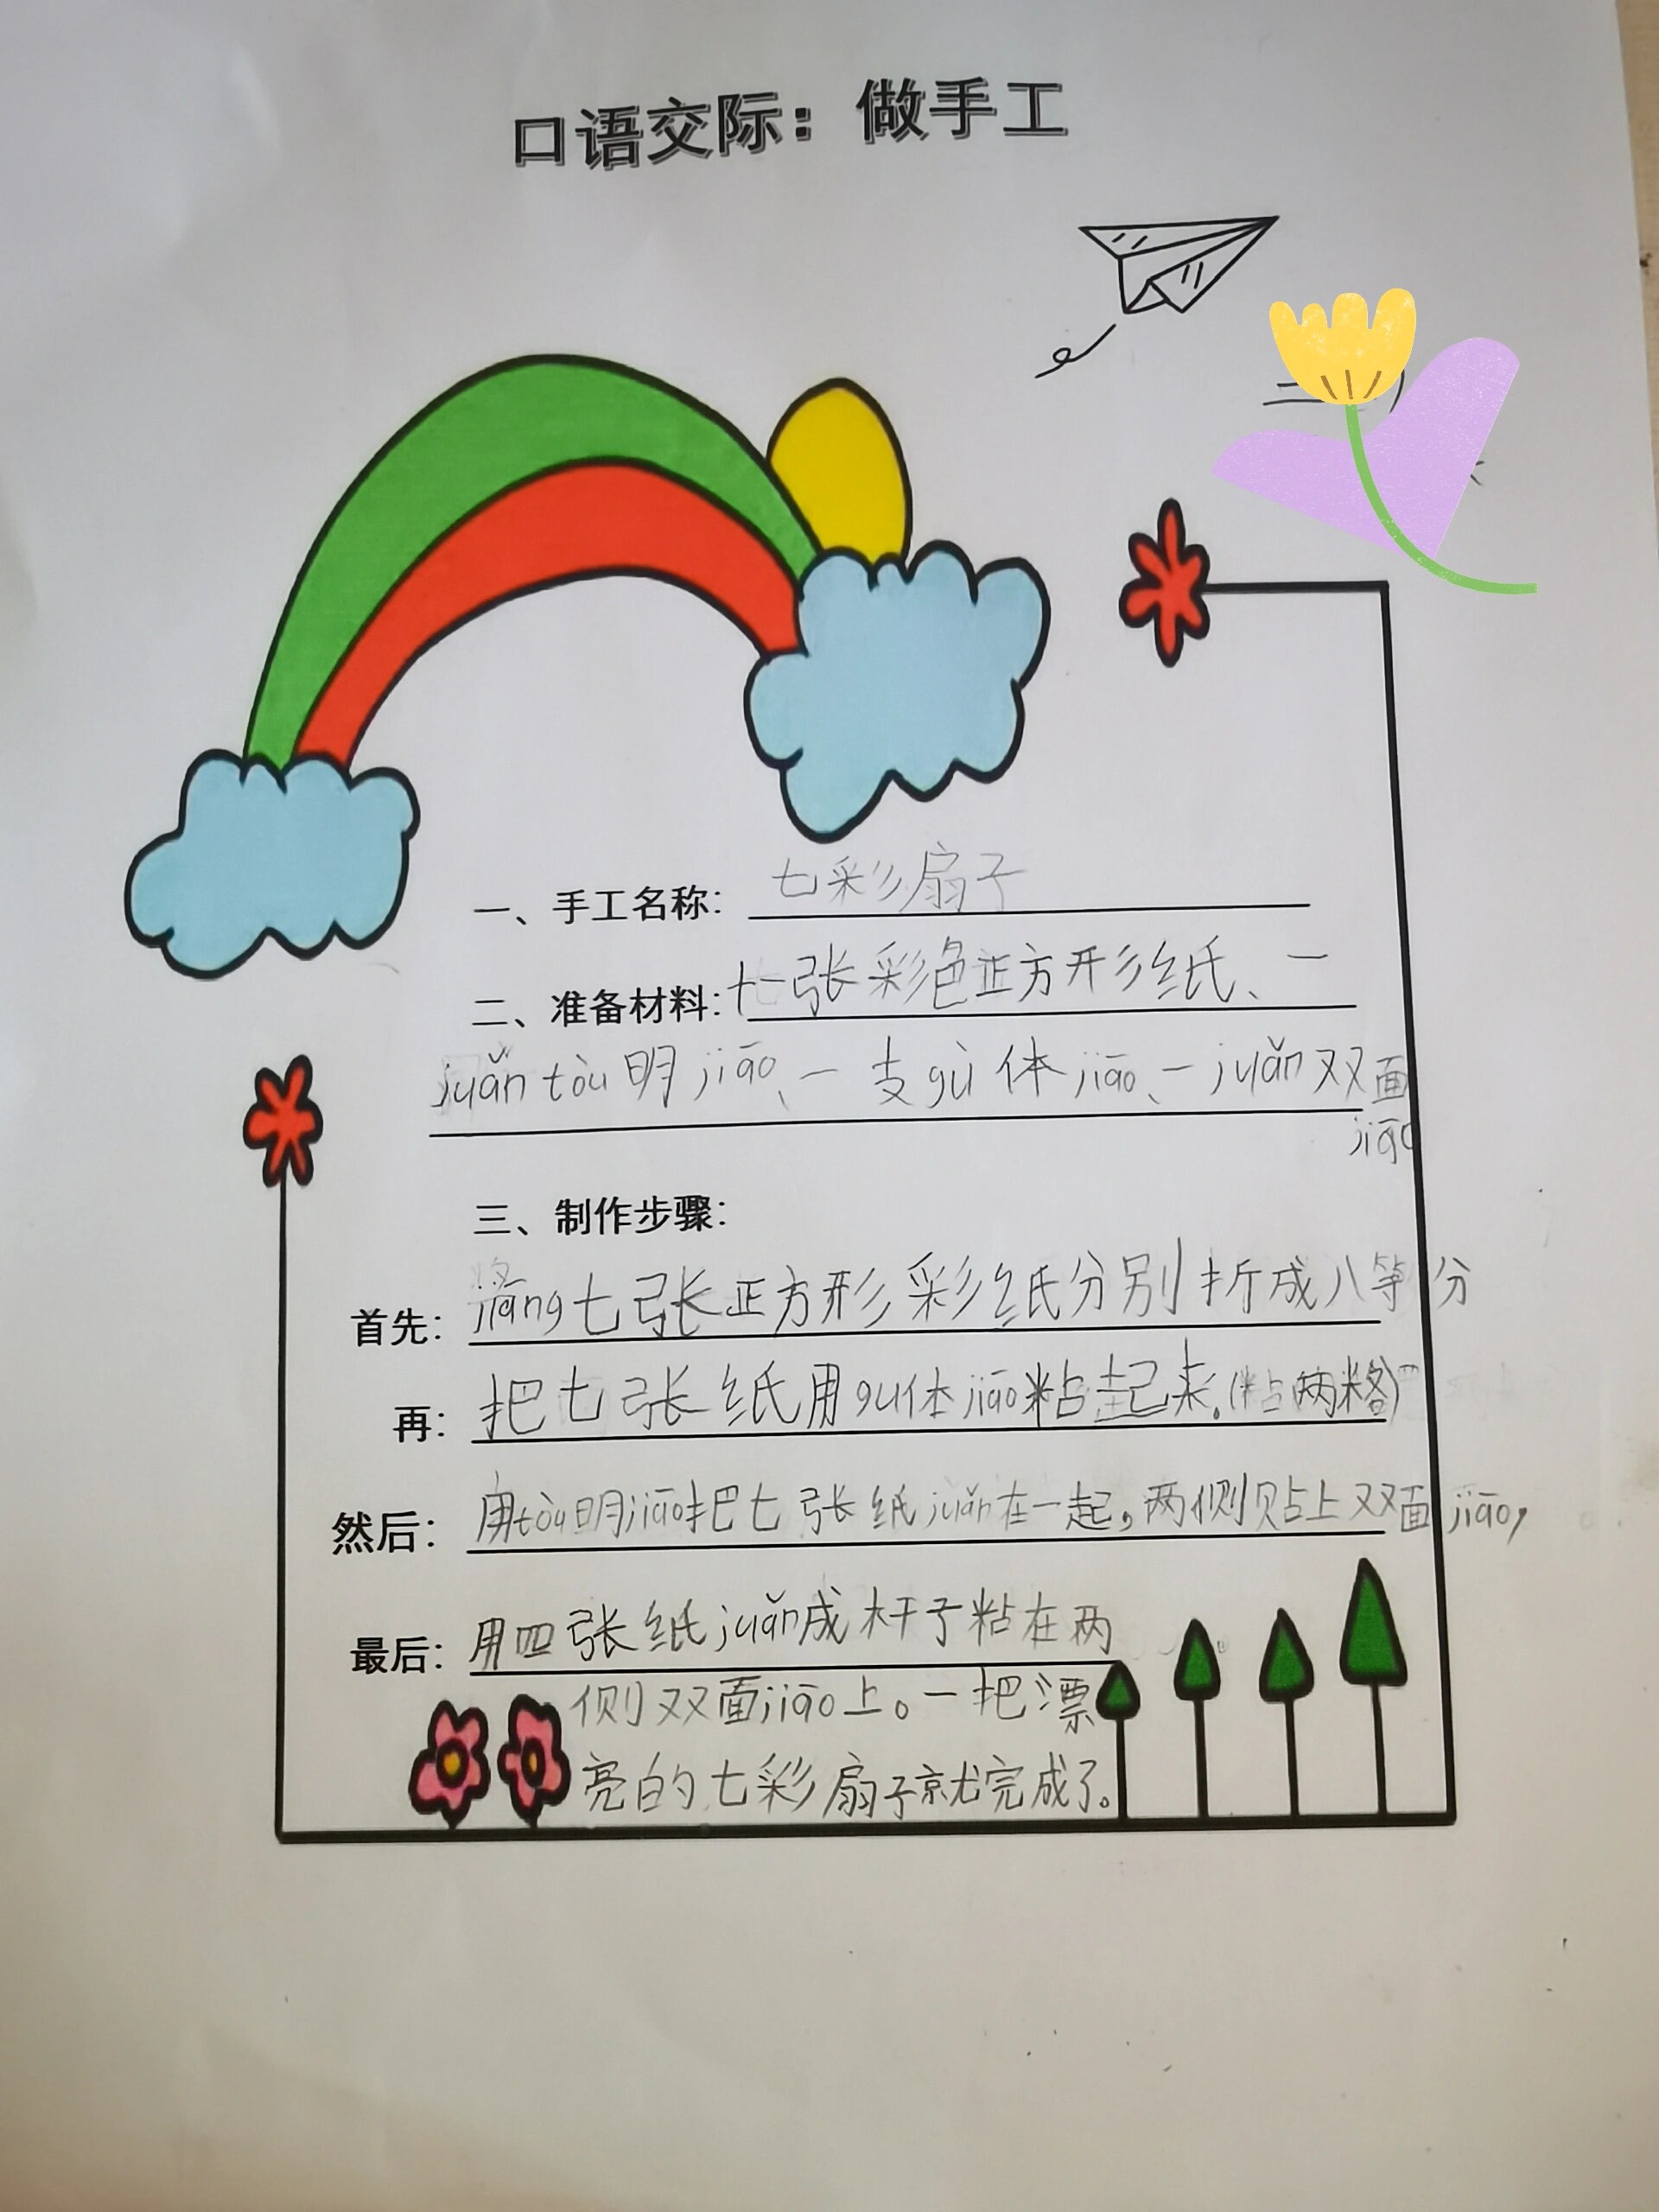 口语交际：做手工
一、手工名称：七彩扇子
二、准备材料：七张彩色正方形纸、一
juǎn tòu 明 jiāo、一支 gù 体 jiāo、一 juǎn 双面
jiāo
三、制作步骤：
首先：jiāng 七张正方形彩纸分别折成八等分
再：把七张纸用 gu 体 jiāo 粘起来。（粘两格）
然后：用 tòu 明 jiāo 把七张纸 juǎn 在一起，两侧贴上双面 jiāo，
最后：用四张纸 juǎn 成杆子粘在两
侧双面 jiāo 上。一把漂
亮的七彩扇子就完成了。